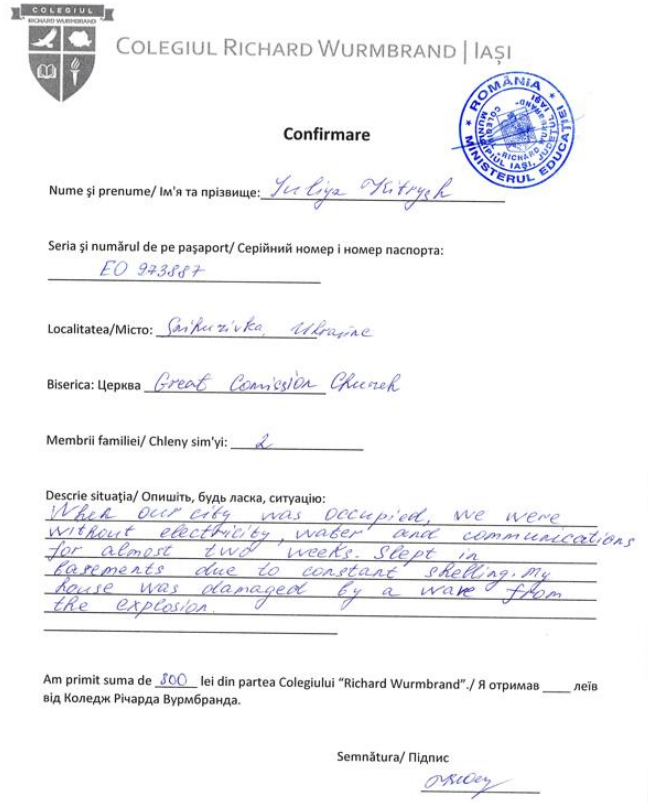 COLEGIUL
RICHARD WURMBRAND
COLEGIUL RICHARD WURMBRAND | IAȘI
ROMÂNIA
MINISTERUL EDUCAȚIEI
MUNICIPIUL IAȘI, JUDEȚUL IAȘI
COLEGIUL "RICHARD WURMBRAND"
Confirmare
Nume şi prenume/ Ім'я та прізвище: Yuliya
Seria şi numărul de pe paşaport/ Серійний номер і номер паспорта:
EO 973887
Localitatea/Місто: Snihurivka, Ukraine
Biserica: Церква Great Comission Church
Membrii familiei/ Chleny sim'yi: 2
Descrie situaţia/ Опишіть, будь ласка, ситуацію:
When our city was occupied, we were
without electricity, water and communications
for almost two weeks. Slept in
basements due to constant shelling. My
house was damaged by a wave from
the explosion.
Am primit suma de 800 lei din partea Colegiului "Richard Wurmbrand"./ Я отримав ____ леїв
від Коледж Річарда Вурмбранда.
Semnătura/ Підпис